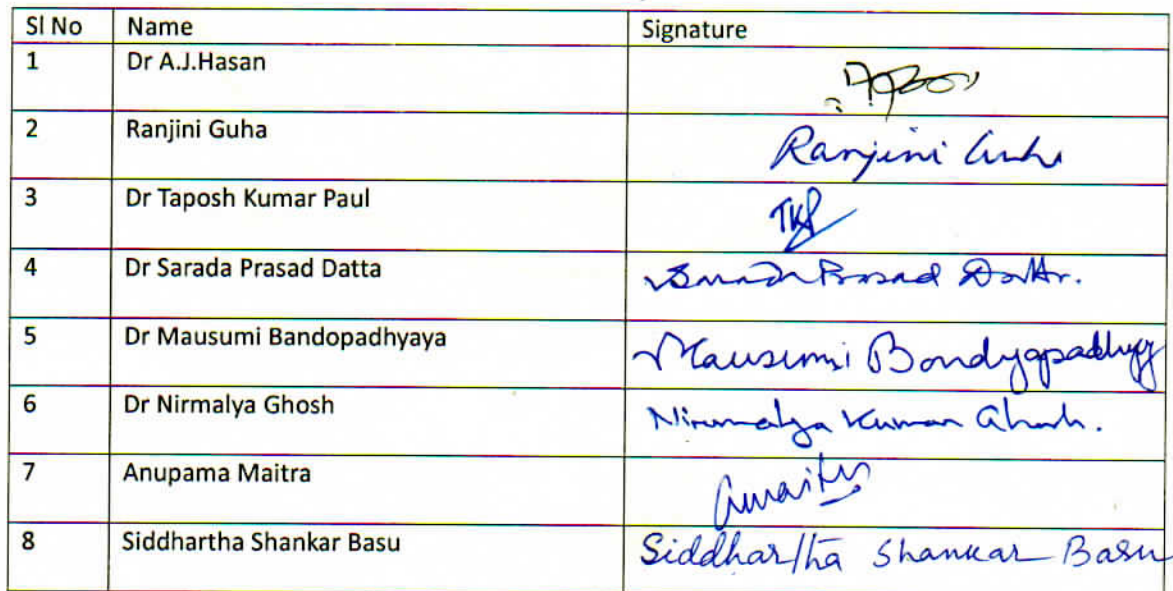 Sl No Name Signature
1 Dr A.J.Hasan
2 Ranjini Guha Ranjini Guha
3 Dr Taposh Kumar Paul TKP
4 Dr Sarada Prasad Datta Sarada Prasad Datta.
5 Dr Mausumi Bandopadhyaya Mausumi Bandyopadhyay
6 Dr Nirmalya Ghosh Nirmalya Kumar Ghosh.
7 Anupama Maitra Amaitra
8 Siddhartha Shankar Basu Siddhartha Shankar Basu